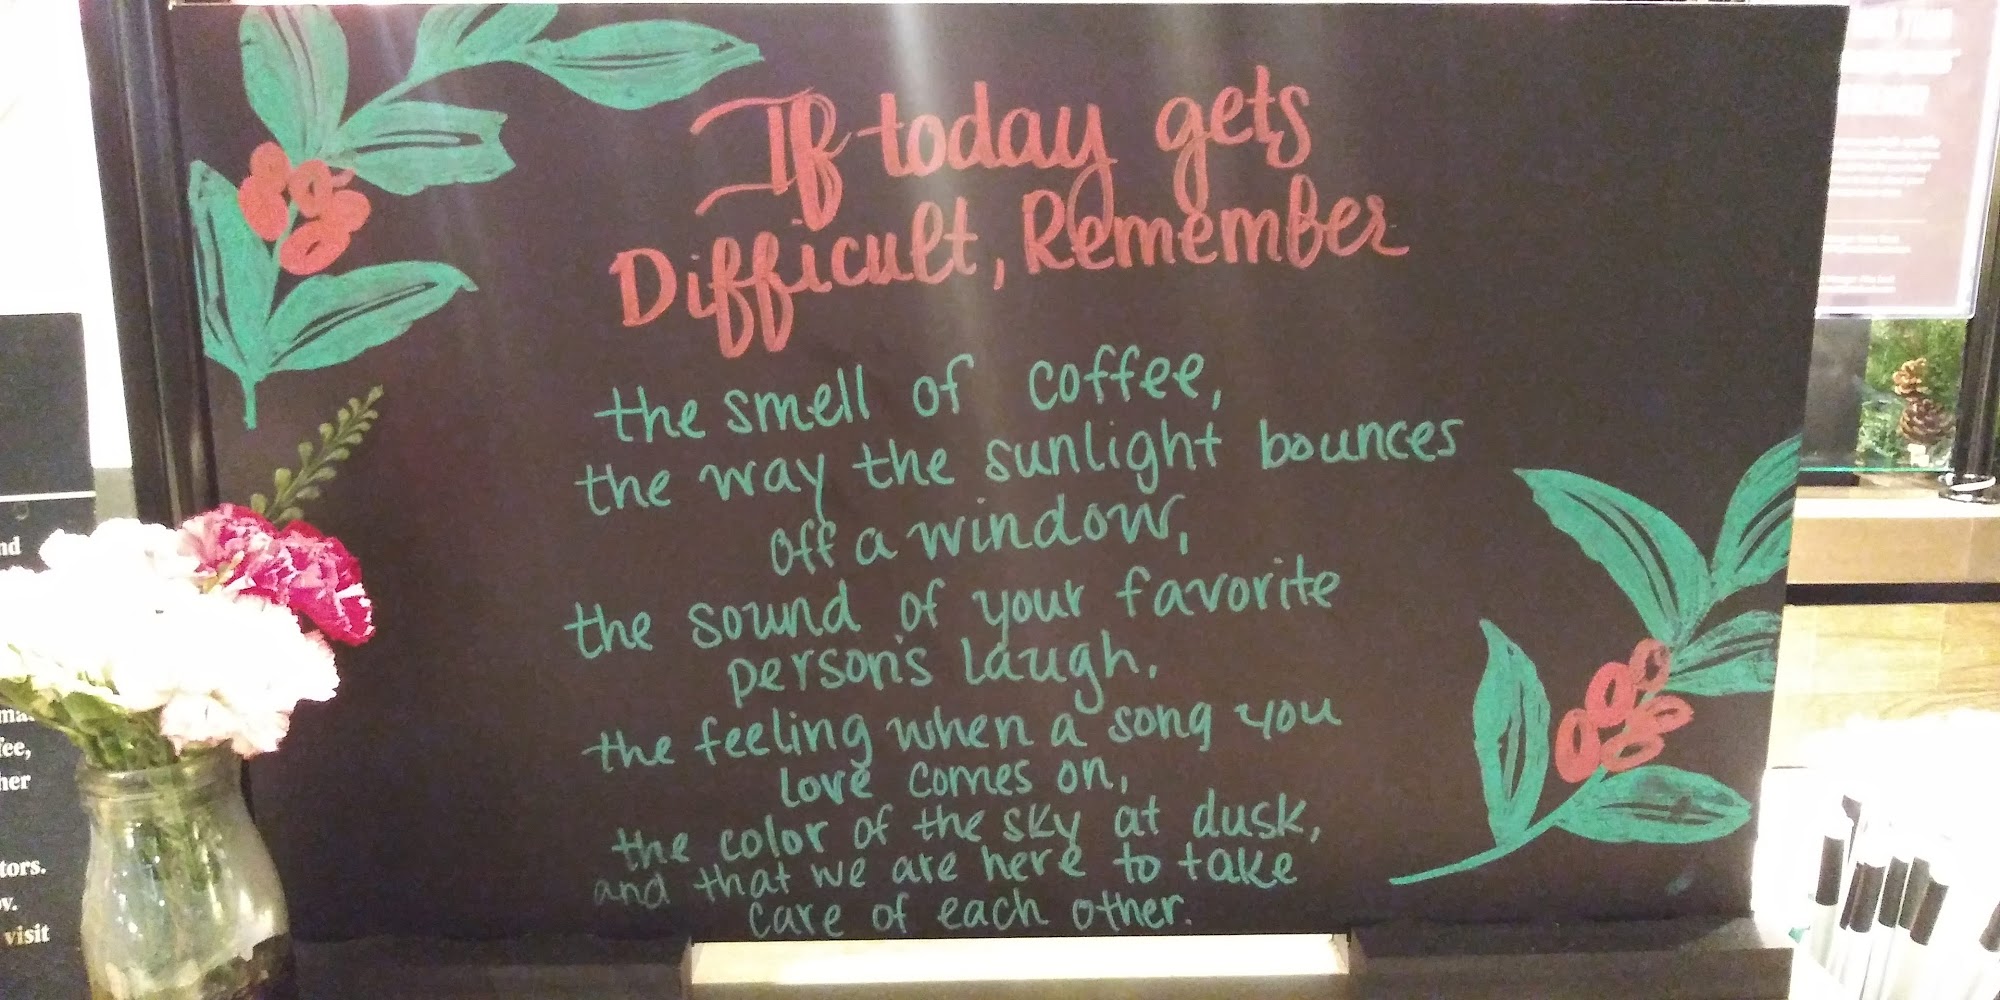 If today gets
Difficult, Remember
the smell of coffee,
the way the sunlight bounces
off a window,
the sound of your favorite
person's laugh,
the feeling when a song you
love comes on,
the color of the sky at dusk,
and that we are here to take
care of each other.
nd
fee,
her
tors.
visit